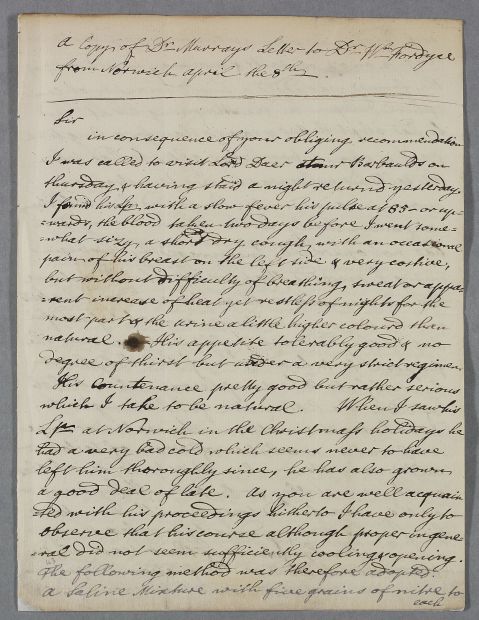 a Copy of Dr Murrays Letter to Dr Wm Fordyce
from Norwich april the 8th
Sir
in consequence of your obliging recommendation
I was called to visit Lord Daer at mr Barbauld's on
thursday & having staid a night returnd yesterday.
I found his Lp with a slow fever his pulse at 85 - or up-
=wards, the blood taken two days before I went some-
=what sizy, a short dry cough, with an occasional
pain of his breast on the left side & very costive,
but without difficulty of breathing, sweat or appa=
=rent increase of heat yet restless of nights for the
most part & the urine a little higher coloured than
natural. His appetite tolerably good & no
degree of thirst but under a very strict regimen.
His countenance pretty good but rather serious
which I take to be natural. When I saw his
Lp at Norwich in the Christmass holidays he
had a very bad cold which seems never to have
left him thoroughly since, he has also grown
a good deal of late. As you are well acquain
=ted with his proceedings hitherto I have only to
observe that his course although proper in gene=
=ral did not seem sufficiently cooling & opening.
The following method was therefore adopted.
a Saline Mixture with five grains of nitre to
each